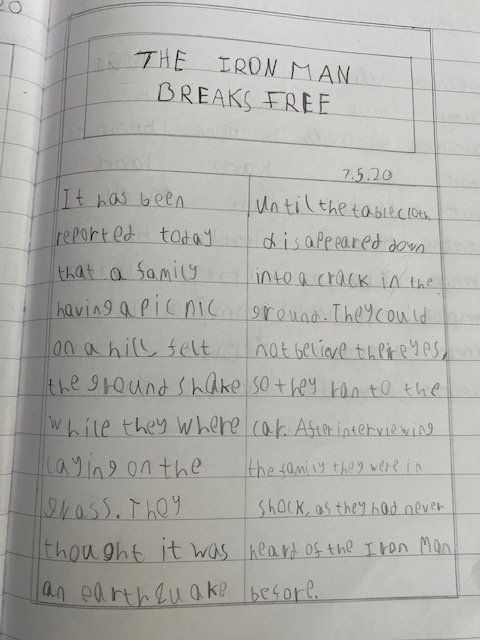 THE IRON MAN
BREAKS FREE
7.5.20
It has been
reported today
that a family
having a picnic
on a hill, felt
the ground shake
while they where
laying on the
grass. They
thought it was
an earthquake
until the tablecloth
disappeared down
into a crack in the
ground. They could
not believe their eyes,
so they ran to the
car. After interviewing
the family they were in
shock, as they had never
heard of the Iron Man
before.